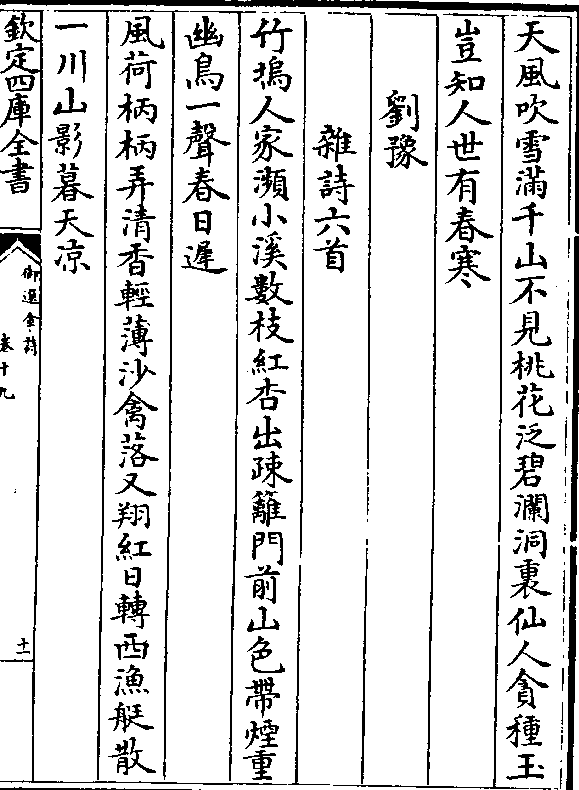 天風吹雪滿千山不見桃花泛碧瀾洞裏仙人貪種玉
豈知人世有春寒
劉豫
雜詩六首
竹塢人家瀕小溪數枝紅杏出疎籬門前山色帶煙重
幽鳥一聲春日遲
風荷柄柄弄清香輕薄沙禽落又翔紅日轉西漁艇散
一川山影暮天凉
欽定四庫全書
御選金詩
卷十九
十一